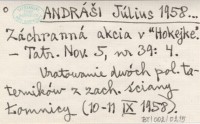 ANDRÁŠI Július 1958...
Záchranná akcia v "Hokejke".
- Tatr. Nov. 5, nr 39: 4.
Uratowanie dwóch pol. ta-
terników z zach. ściany
Łomnicy (10-11 IX 1958).